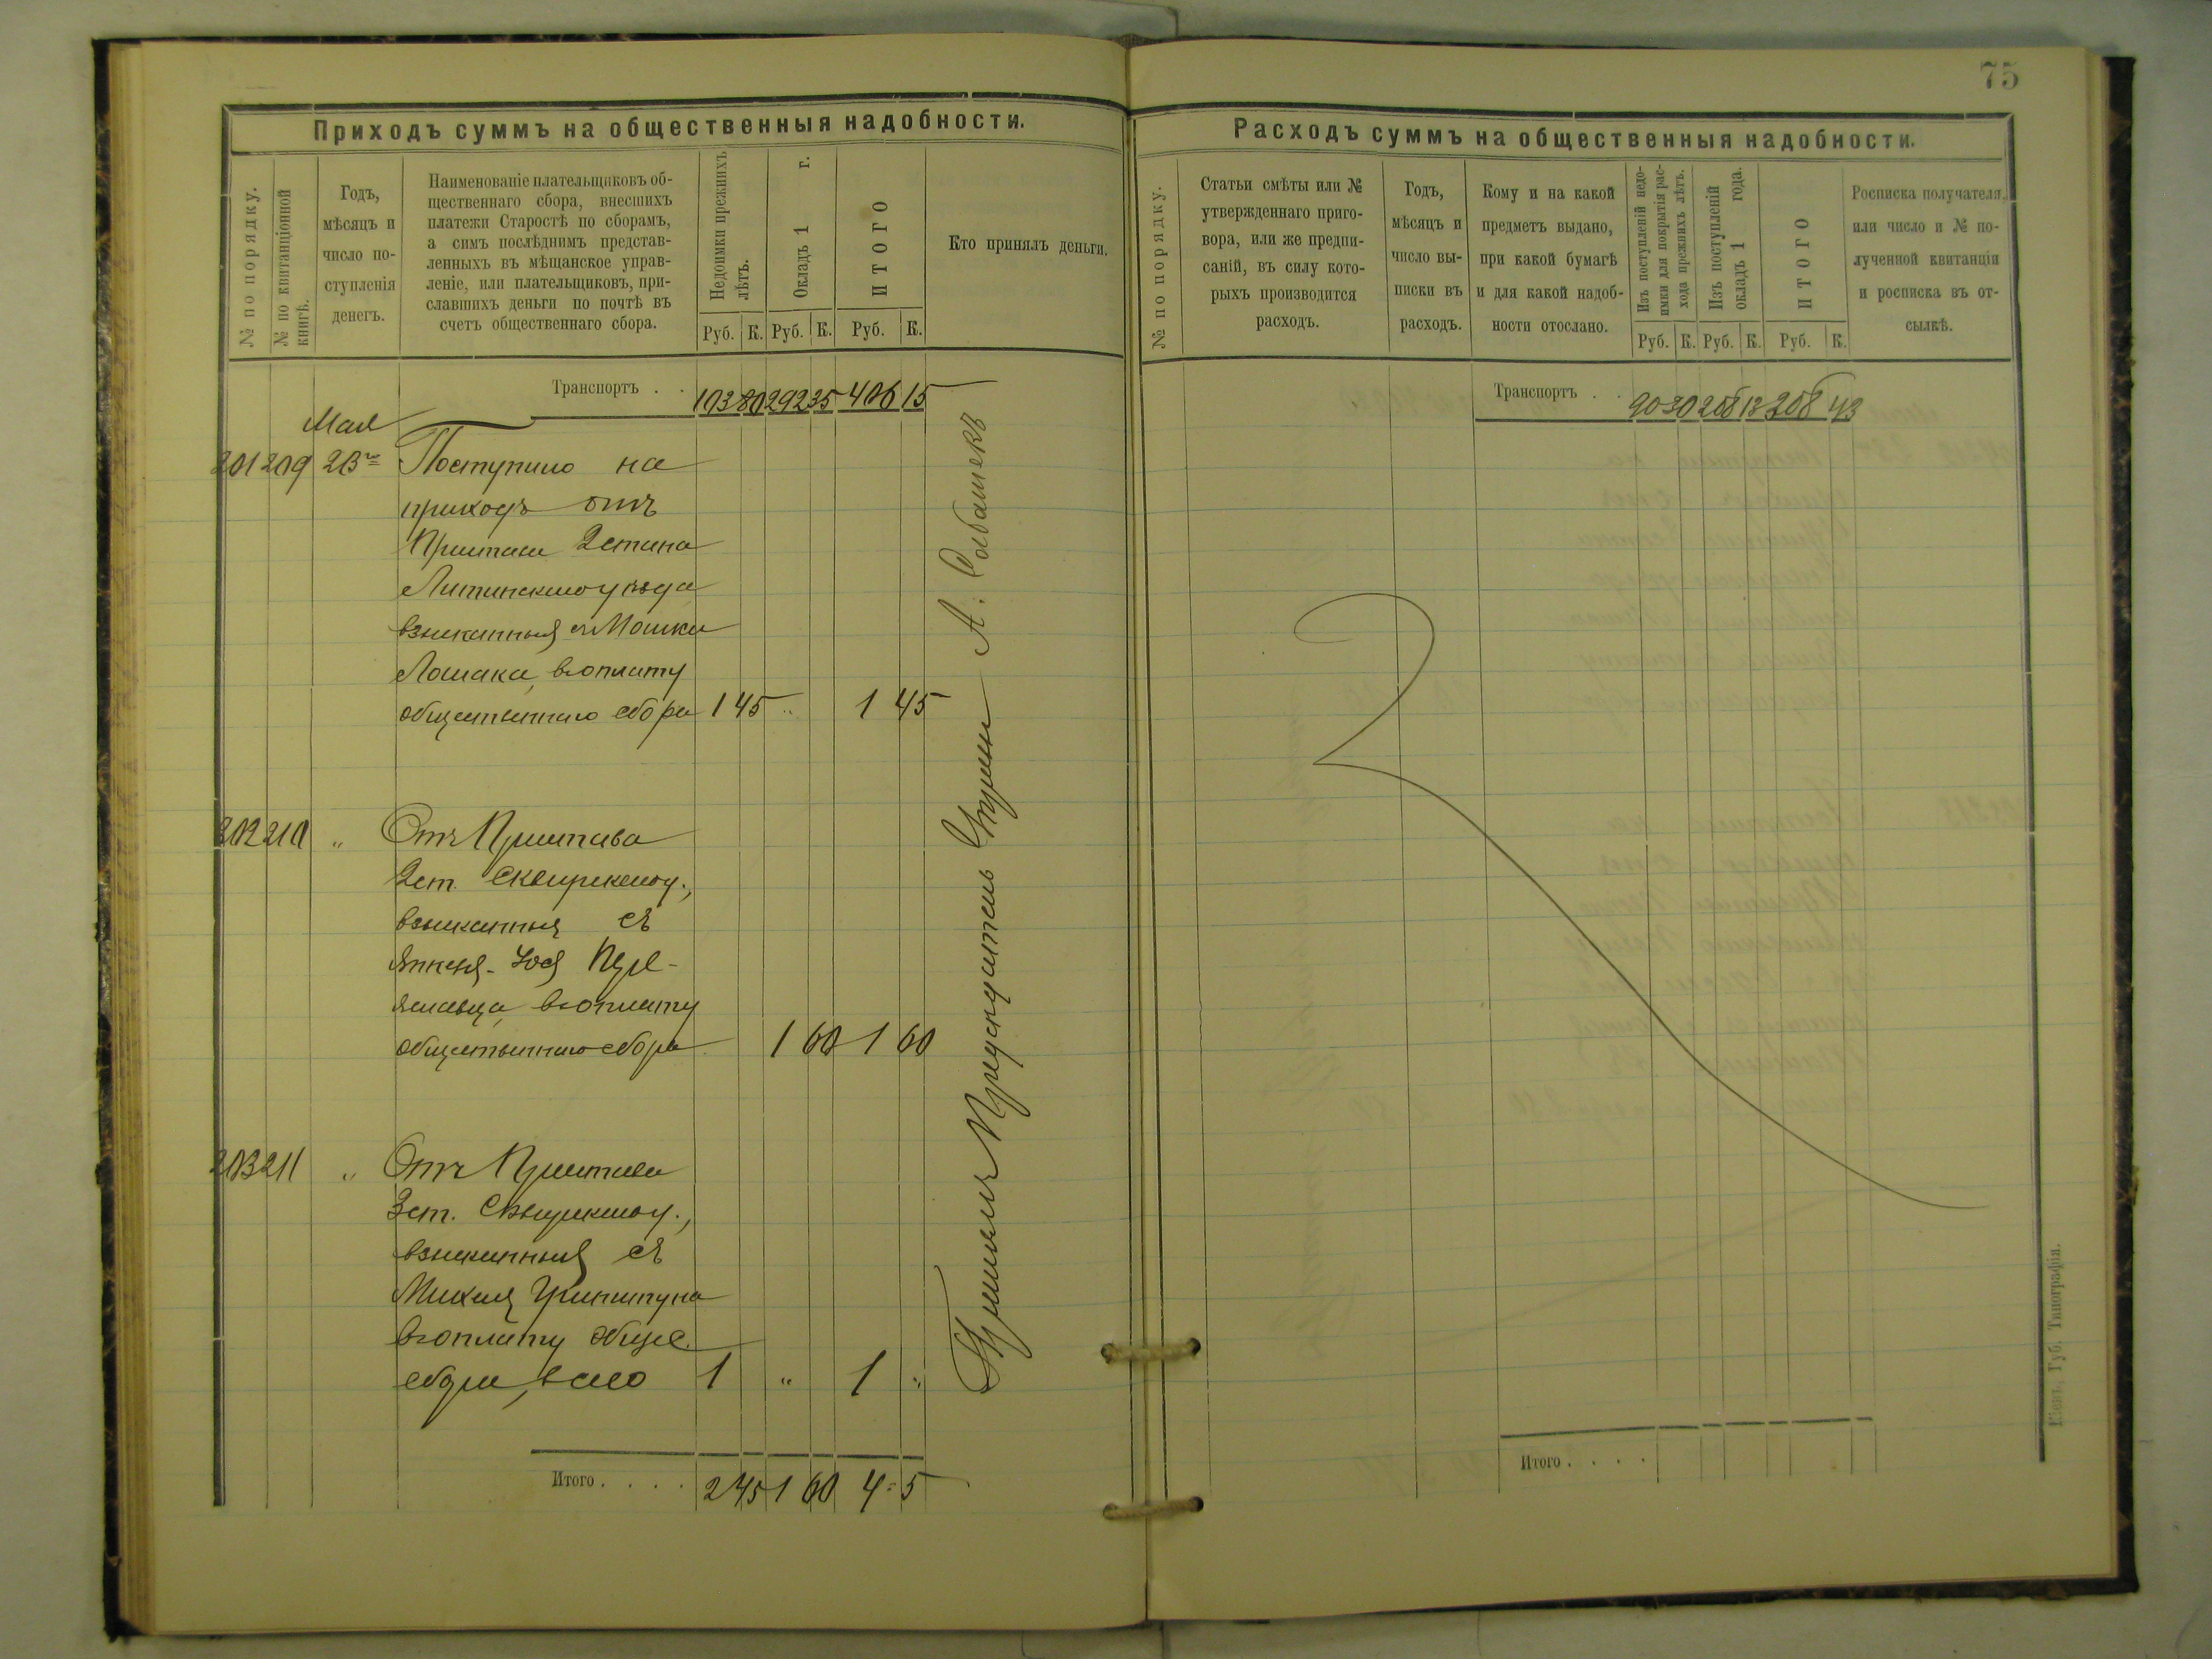 75
Приходъ суммъ на общественныя надобности.
№ по порядку.
№ по квитанціонной
книгѣ.
Годъ,
мѣсяцъ и
число по-
ступленія
денегъ.
Наименованіе плательщиковъ об-
щественнаго сбора, внесшихъ
платежи Старостѣ по сборамъ,
а симъ послѣднимъ представ-
ленныхъ въ мѣщанское управ-
леніе, или плательщиковъ, при-
славшихъ деньги по почтѣ въ
счетъ общественнаго сбора.
Недоимки прежнихъ
лѣтъ.
Окладъ 1 г.
ИТОГО
Руб. К. Руб. К. Руб. К.
Кто принялъ деньги.
Транспортъ . . 103 80 292 35 406 15
Мая
201 209 23 Поступило на
приходъ отъ
Пристава 2 стана
Литинского уѣзда
взысканныя съ Мошка
Лошака, въ оплату
общественнаго сбора 1 45 „ 1 45
202 210 „ Отъ Пристава
2 ст. Сквирского у.,
взысканныя съ
въ оплату
общественнаго сбора 1 60 1 60
203 211 „ Отъ Пристава
3 ст. Сквирского у.,
взысканныя съ
въ оплату общес.
сбора, всего 1 „ 1 „
Итого . . . . 2 45 1 60 4 5
Принялъ Предсѣдатель Управы А.
Расходъ суммъ на общественныя надобности.
№ по порядку.
Статьи смѣты или №
утвержденнаго приго-
вора, или же предпи-
саній, въ силу кото-
рыхъ производится
расходъ.
Годъ,
мѣсяцъ и
число вы-
писки въ
расходъ.
Кому и на какой
предметъ выдано,
при какой бумагѣ
и для какой надоб-
ности отослано.
Изъ поступленій недо-
имки для покрытія рас-
хода прежнихъ лѣтъ.
Изъ поступленій
окладъ 1 года.
ИТОГО
Руб. К. Руб. К. Руб. К.
Росписка получателя,
или число и № по-
лученной квитанціи
и росписка въ от-
сылкѣ.
Транспортъ . . 90 30 208 13 308 43
Итого . . . .
Кіевъ, Губ. Типографія.